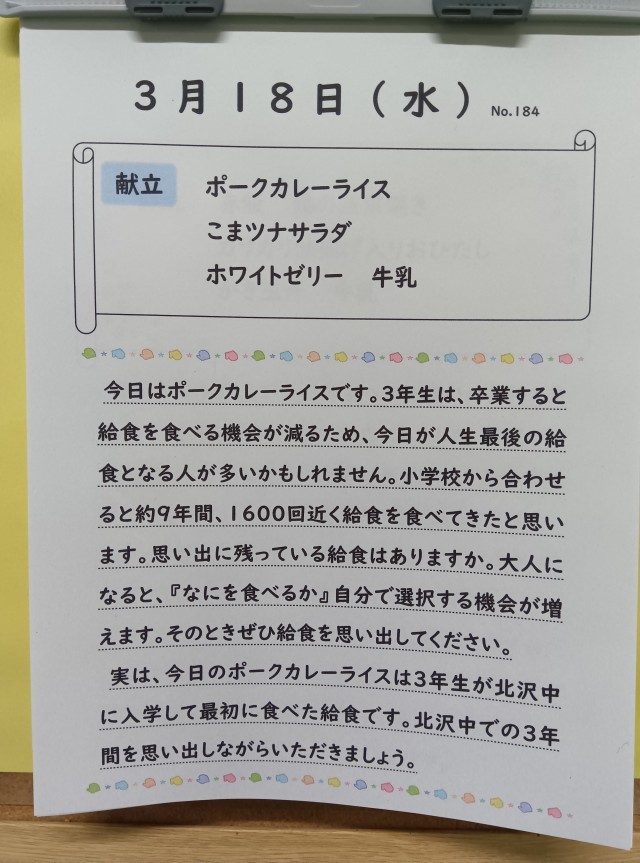 3月18日(水) No.184
献立
ポークカレーライス
こまツナサラダ
ホワイトゼリー 牛乳
今日はポークカレーライスです。3年生は、卒業すると
給食を食べる機会が減るため、今日が人生最後の給
食となる人が多いかもしれません。小学校から合わせ
ると約9年間、1600回近く給食を食べてきたと思い
ます。思い出に残っている給食はありますか。大人に
なると、『なにを食べるか』自分で選択する機会が増
えます。そのときぜひ給食を思い出してください。
実は、今日のポークカレーライスは3年生が北沢中
に入学して最初に食べた給食です。北沢中での3年
間を思い出しながらいただきましょう。